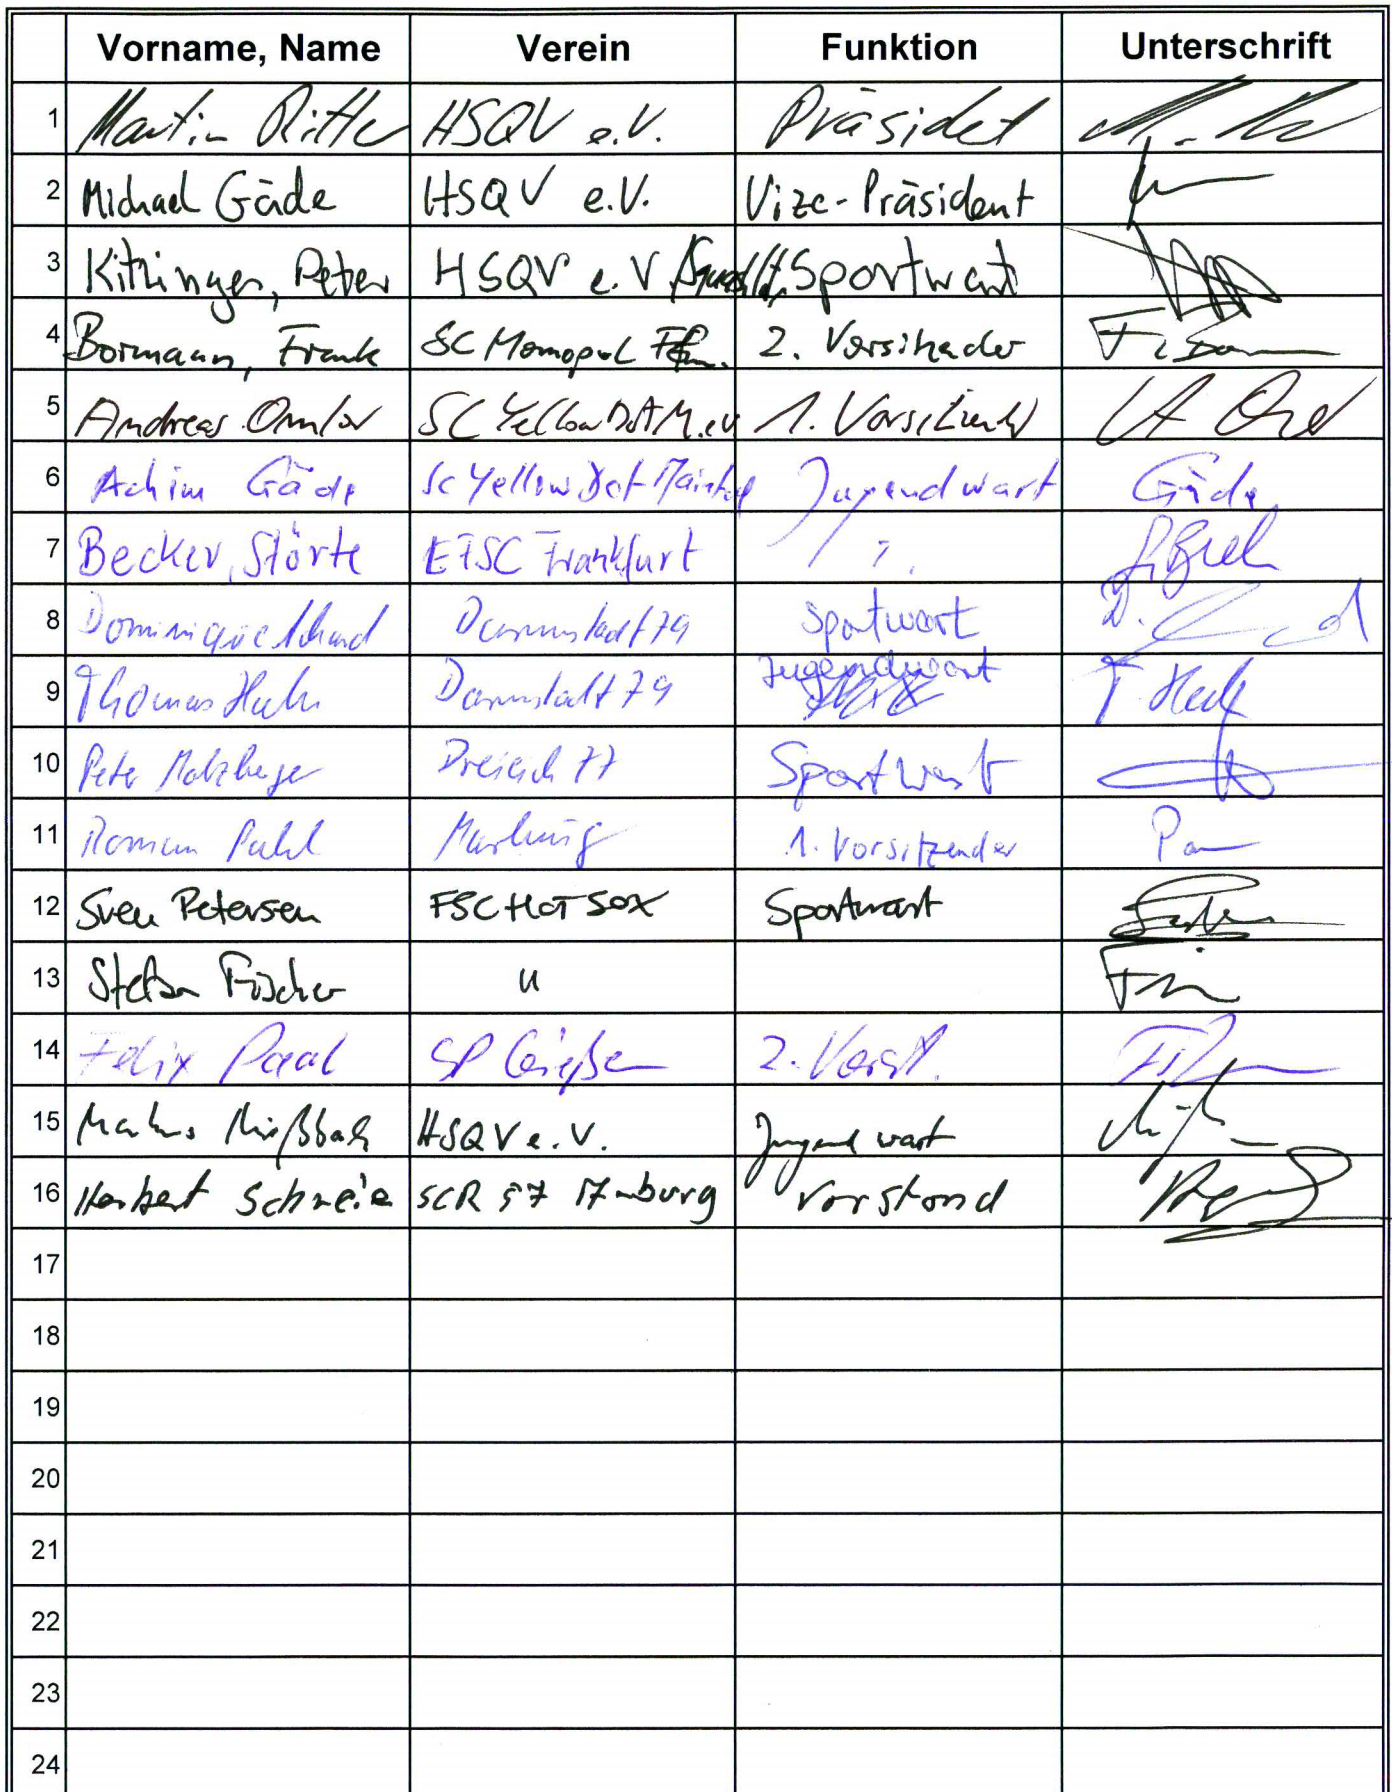 Vorname, Name Verein Funktion Unterschrift
1 Martin Ritter HSQV e.V. Präsident
2 Michael Gäde HSQV e.V. Vize-Präsident
3 Kitzinger, Peter HSQV e.V. Sportwart
4 Bormann, Frank SC Monopol Ffm. 2. Vorsitzender
5 Andreas Omlor SC Yellow DOT M. e.V 1. Vorsitzender
6 Achim Gäde SC Yellow Dot Maintal Jugendwart Gäde
7 Becker, Störte EFSC Frankfurt
8 Dominique Darmstadt 79 Sportwart
9 Thomas Darmstadt 79 Jugendwart
10 Peter Dreieich 77 Sportwart
11 Roman Pahl Marburg 1. Vorsitzender
12 Sven Petersen FSC HOT SOX Sportwart
13 Stefan Fischer "
14 Felix Paal SP Gießen 2. Vorsit.
15 Markus Mißbach HSQV e.V. Jugendwart
16 Herbert SCR Vorstand
17
18
19
20
21
22
23
24